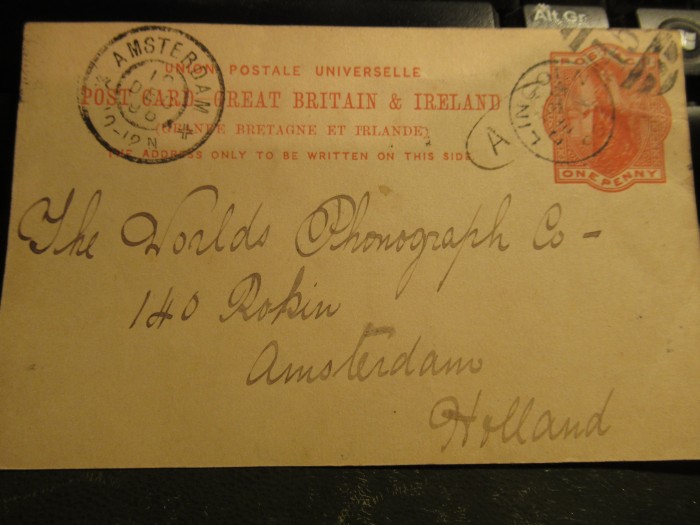 Alt Gr
AMSTERDAM
UNION POSTALE UNIVERSELLE
POST CARD-GREAT BRITAIN & IRELAND
(GRANDE BRETAGNE ET IRLANDE)
THE ADDRESS ONLY TO BE WRITTEN ON THIS SIDE
A
ONE PENNY
The Worlds Phonograph Co -
140 Rokin
Amsterdam
Holland